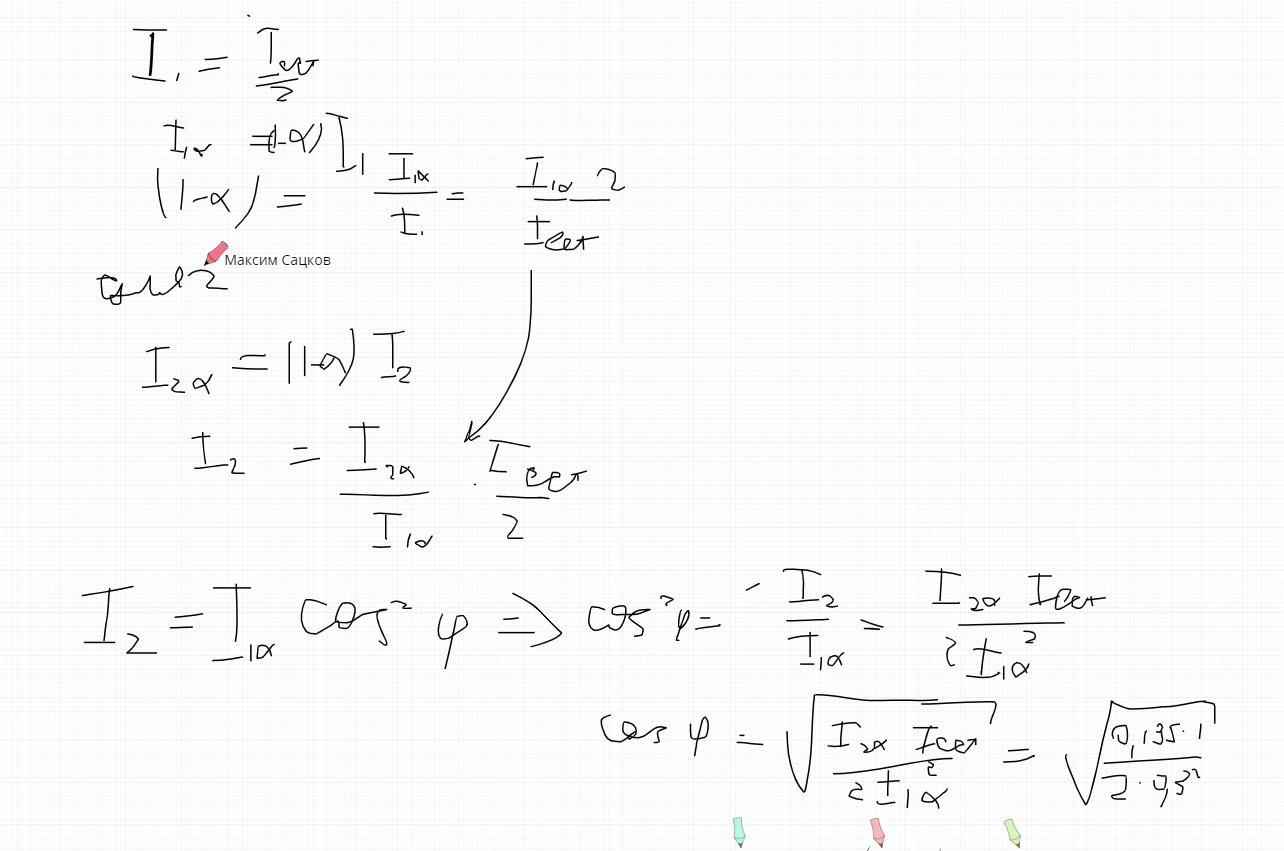 I₁ = Iест/2
I₁α = (1-α) I₁
(1-α) = I₁α/I₁ = I₁α 2/Iест
Максим Сацков
I₂α = (1-α) I₂
I₂ = I₂α/I₁α · Iест/2
I₂ = I₁α cos² φ ⇒ cos² φ = I₂/I₁α = I₂α Iест/2 I₁α²
cos φ = √(I₂α Iест/2 I₁α²) = √(0,135·1/2·0,3²)